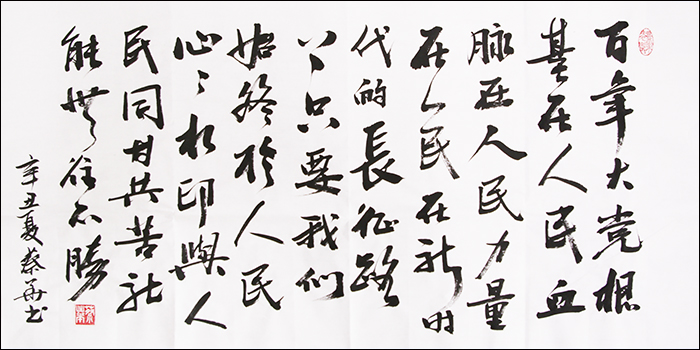 百年大党根
基在人民血
脉在人民力量
在人民在新时
代的長征路
上只要我们
始终於人民
心々相印與人
民同甘共苦就
能無往不勝
辛丑夏蔡华书